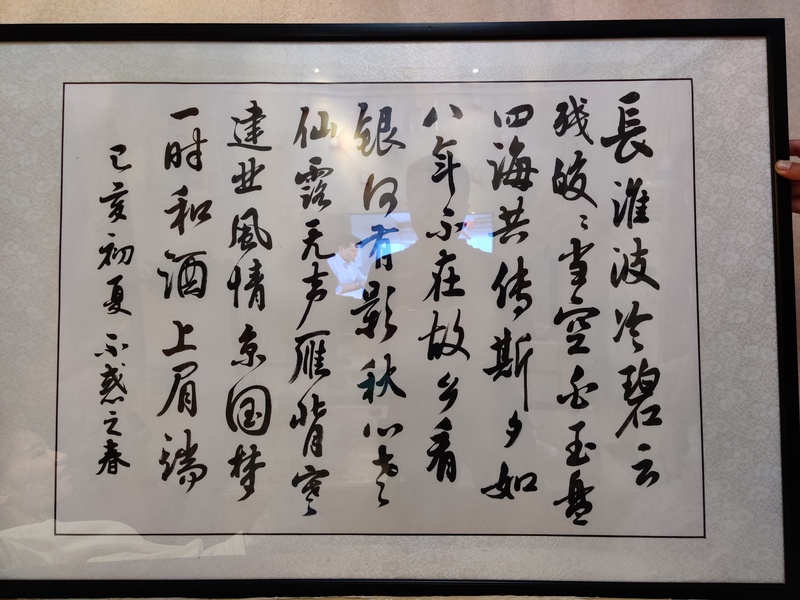 長淮波冷碧云
残皎皎当空白玉盘
四海共传斯夕好
八年不在故乡看
银河有影秋心老
仙露无声雁背寒
建业風情京国梦
一时和酒上眉端
己亥初夏不惑之春